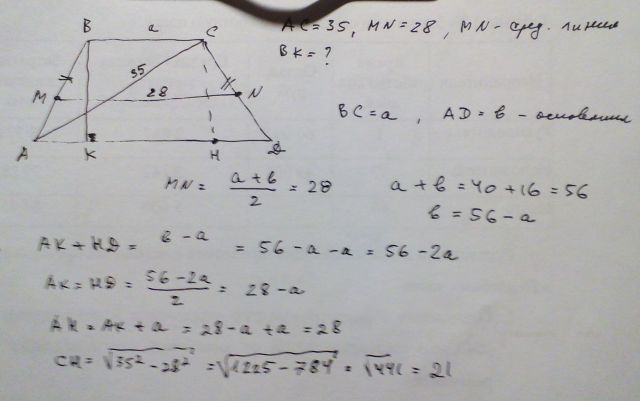 AC=35, MN=28, MN- сред. линия
BK=?
B a C
35
M 28 N
A K H D
BC=a, AD=b - основания
MN= (a+b)/2 = 28
a+b=40+16=56
b=56-a
AK+HD= b-a = 56-a-a = 56-2a
AK=HD= (56-2a)/2 = 28-a
AH=AK+a=28-a+a=28
CH=√35²-28² =√1225-784 =√441 = 21